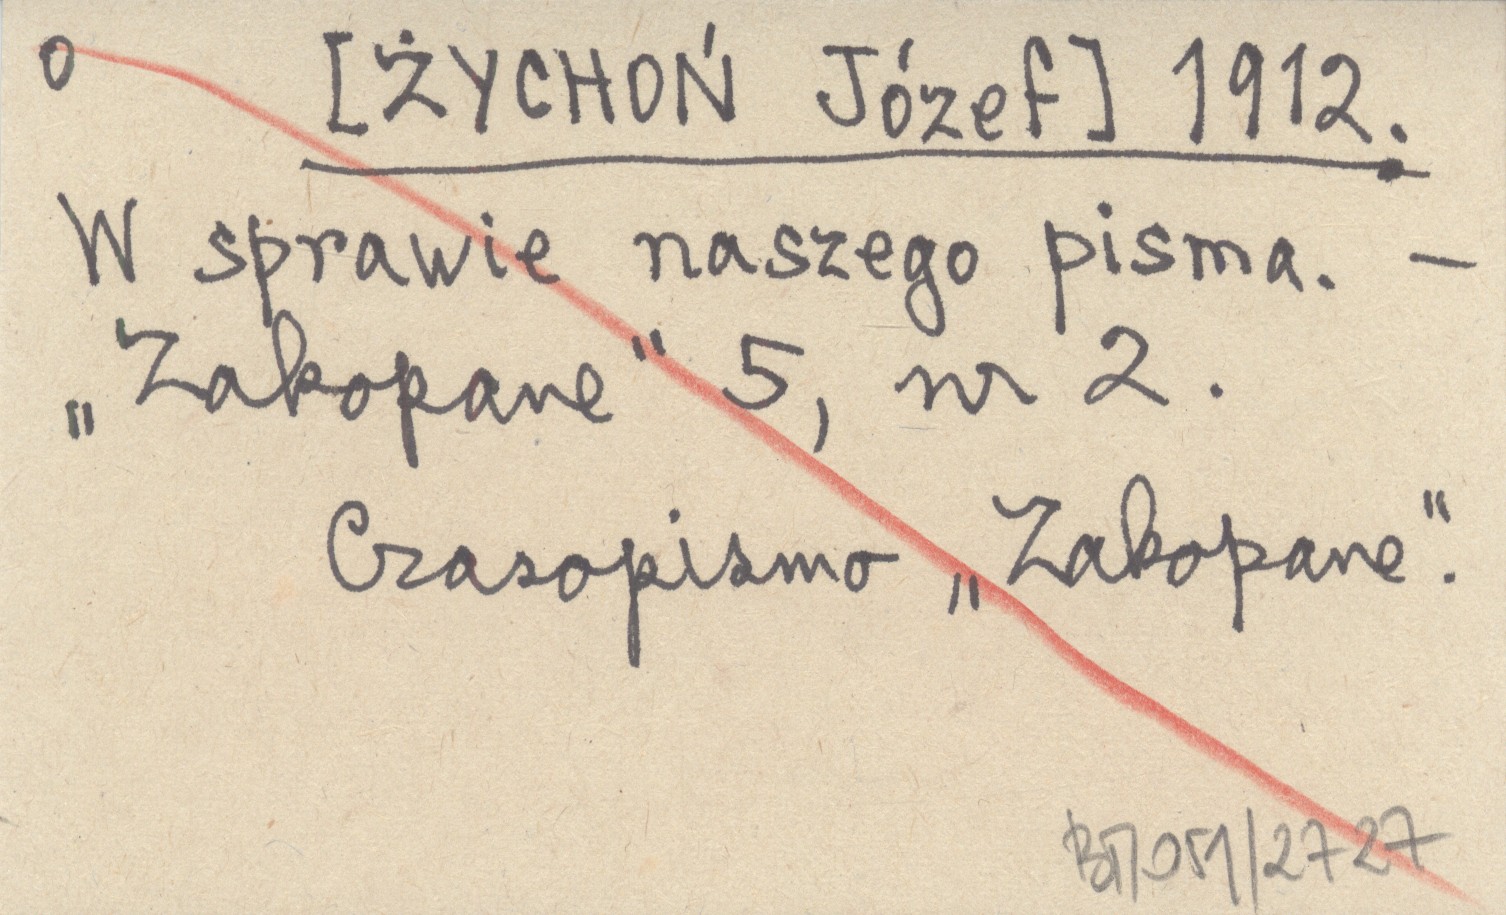 o [ŻYCHOŃ Józef] 1912.
W sprawie naszego pisma. —
„Zakopane" 5, nr 2.
Czasopismo „Zakopane".
051/2727